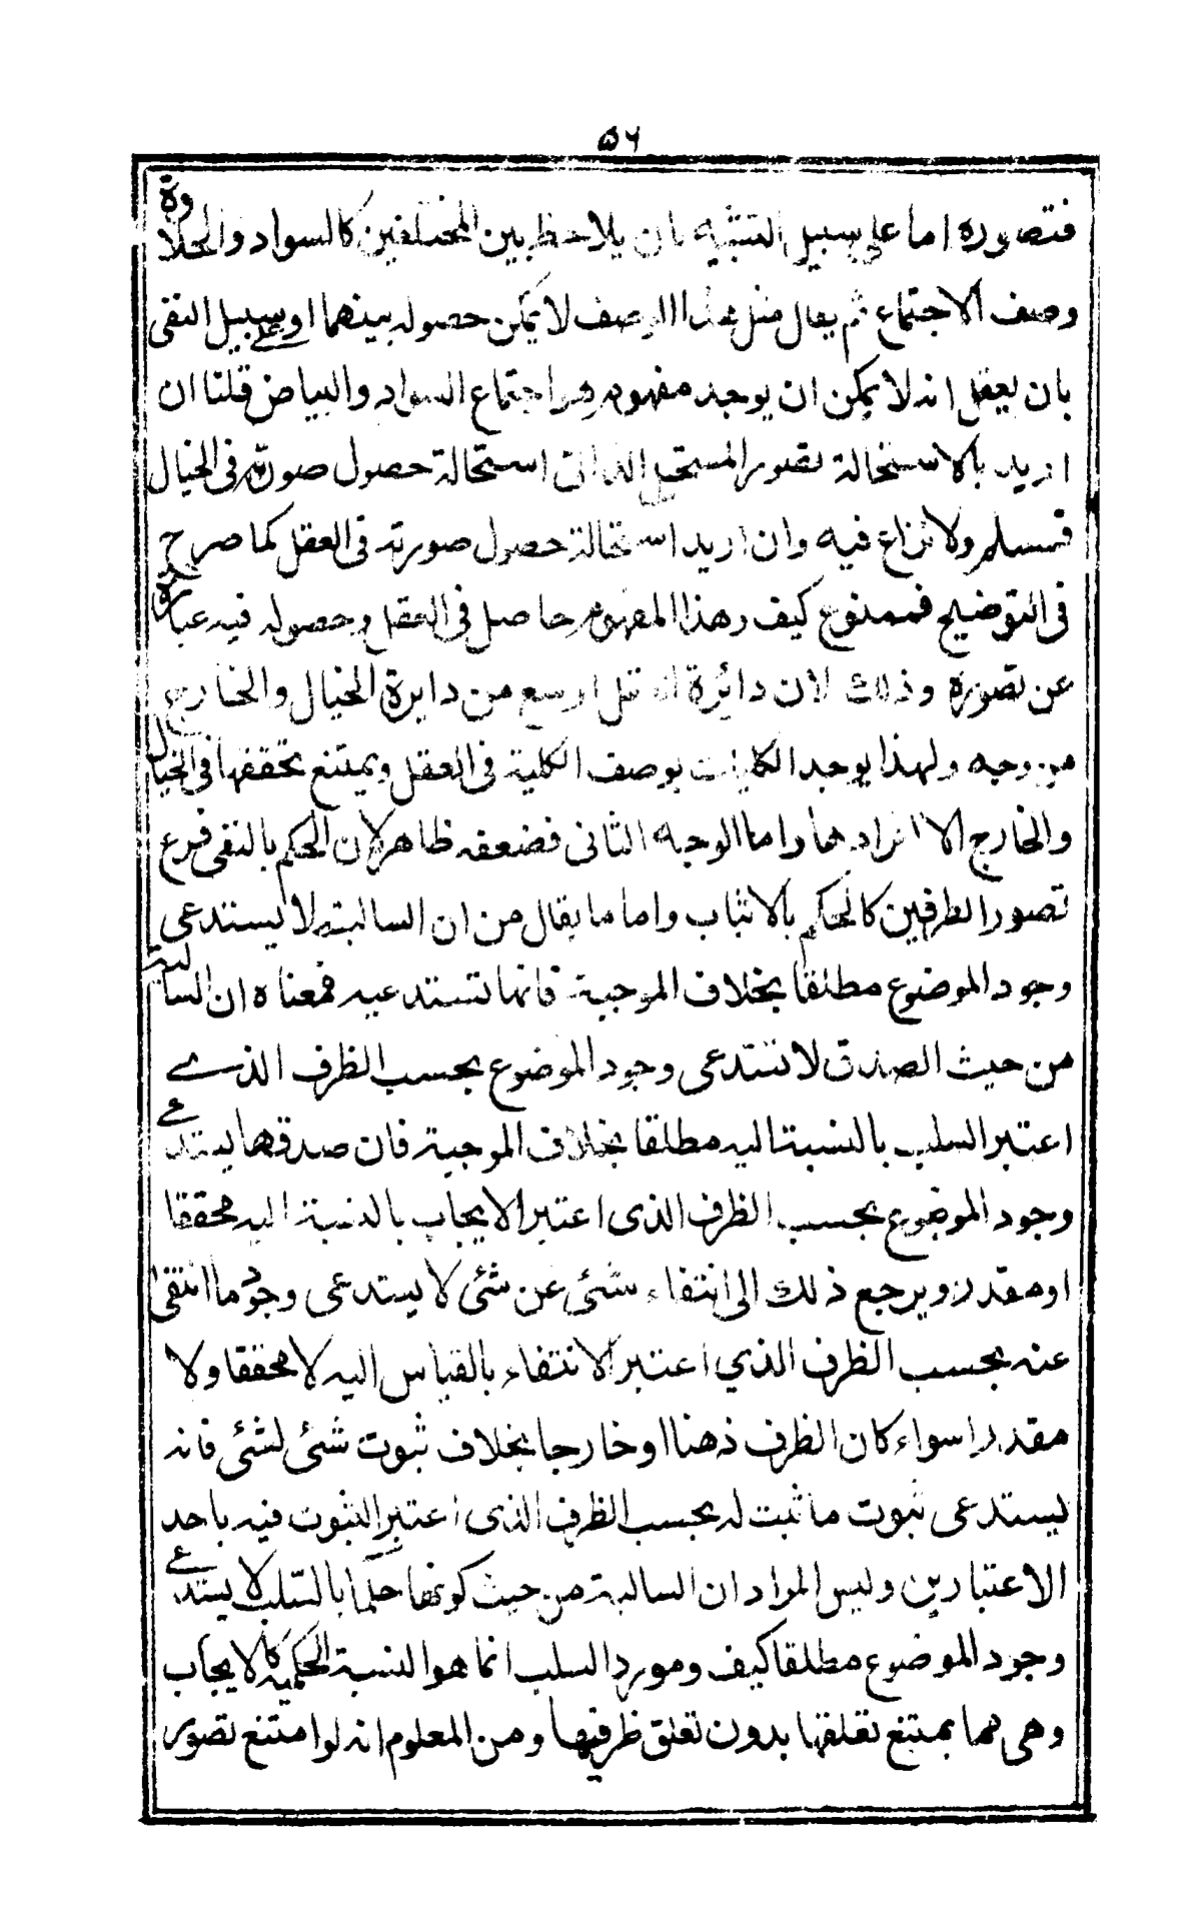 ۵۶
فتصوره اما على سبيل التشبيه بان يلاحظ بين المختلفين كالسواد والحلاوة
وصف الاجتماع ثم يقال مثل هذا الوصف لا يمكن حصوله بينهما او على سبيل النفى
بان يعقل انه لا يمكن ان يوجد مفهوم هو اجتماع السواد والبياض قلنا ان
اريد بالاستحالة تصور المستحيل الذاتى استحالة حصول صورته فى الخيال
فمسلم ولا نزاع فيه وان اريد استحالة حصول صورته فى العقل كما صرح
فى التوضيح فممنوع كيف وهذا المفهوم حاصل فى العقل وحصوله فيه عبارة
عن تصوره وذلك لان دائرة العقل اوسع من دايرة الخيال والخارج
من وجه ولهذا يوجد الكليات بوصف الكلية فى العقل ويمتنع تحققها فى الخيال
والخارج الا افرادها واما الوجه الثانى فضعفه ظاهر لان الحكم بالنفى فرع
تصور الطرفين كالحكم بالاثبات واما ما يقال من ان السالبة لا يستدعى
وجود الموضوع مطلقا بخلاف الموجبة فانها تستدعيه فمعناه ان السالبة
من حيث الصدق لا تستدعى وجود الموضوع بحسب الظرف الذے
اعتبر السلب بالنسبة اليه مطلقا بخلاف الموجبة فان صدقها يستدعے
وجود الموضوع بحسب الظرف الذى اعتبر الايجاب بالنسبة اليه محققا
او مقدرا ويرجع ذلك الى انتفاء شئى عن شئى لا يستدعى وجود ما انتفى
عنه بحسب الظرف الذي اعتبر الانتفاء بالقياس اليه لا محققا ولا
مقدرا سواء كان الظرف ذهنا او خارجا بخلاف ثبوت شئى لشئى فانه
يستدعى ثبوت ما ثبت له بحسب الظرف الذى اعتبر الثبوت فيه باحد
الاعتبارين وليس المراد ان السالبة من حيث كونها حكما بالسلب لا يستدعے
وجود الموضوع مطلقا كيف ومورد السلب انما هو النسبة الحكمية كالايجاب
وهى مما يمتنع تعلقها بدون تعلق طرفيها ومن المعلوم انه لو امتنع تصور